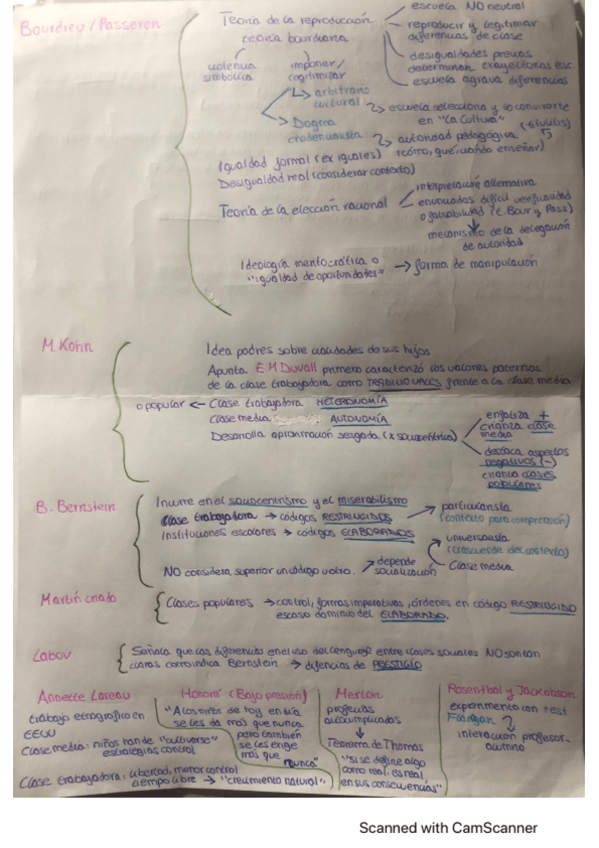 Bourdieu / Passeron
Teoría de la reproducción
teoría bourdiana
escuela NO neutral
reproducir y legitimar
diferencias de clase
desigualdades previas
determinan trayectorias esc
escuela agrava diferencias
violencia
simbólica
imponer/
legitimizar
arbitrario
cultural
escuela selecciona y lo convierte
en "La Cultura"
(títulos)
Dogma
credencialista
autoridad pedagógica
(cómo, qué, cuándo enseñar)
Igualdad formal (ex iguales)
Desigualdad real (considerar contexto)
Teoría de la elección racional
interpretación alternativa
enunciados difícil verificabilidad
o falsabilidad (E. Bour y Pass)
mecanismo de la delegación
de autoridad
Ideología meritocrática o
"igualdad de oportunidades"
→ forma de manipulación
M Kohn
Idea padres sobre cualidades de sus hijos
Apunta E M Duvall primero caracterizó los valores paternos
de la clase trabajadora como TRADICIONALES frente a la clase media
o popular ← Clase trabajadora HETERONOMÍA
Clase media AUTONOMÍA
Desarrolla aproximación sesgada (x sociocéntrica)
enfatiza +
crianza clase
media
destaca aspectos
negativos (-)
crianza clases
populares
B. Bernstein
Incurre en el sociocentrismo y el miserabilismo
Clase trabajadora → códigos RESTRINGIDOS
particularista
(contexto para comprensión)
Instituciones escolares → códigos ELABORADOS
universalista
(trasciende del contexto)
Clase media
NO considera superior un código u otro.
depende
socialización
Martín criado
Clases populares → control, formas imperativas, órdenes en código RESTRINGIDO
escaso dominio del ELABORADO.
Labov
Señala que las diferencias en el uso del lenguaje entre clases sociales NO son tan
claras como indica Bernstein → difencias de PRESTIGIO
Annette Lareau
trabajo etnográfico en
EEUU
Clase media: niños han de "cultivarse"
estrategias control
Clase trabajadora: libertad, menor control
tiempo libre → "crecimiento natural"
Honoré (Bajo presión)
"A los niños de hoy en día
se les da más que nunca
pero también
se les exige
más que
nunca"
Merton
profecías
autocumplidas
Teorema de Thomas
"si se define algo
como real, es real
en sus consecuencias"
Rosenthal y Jackobson
experimento con test
Flanagan
interacción profesor-
alumno
Scanned with CamScanner